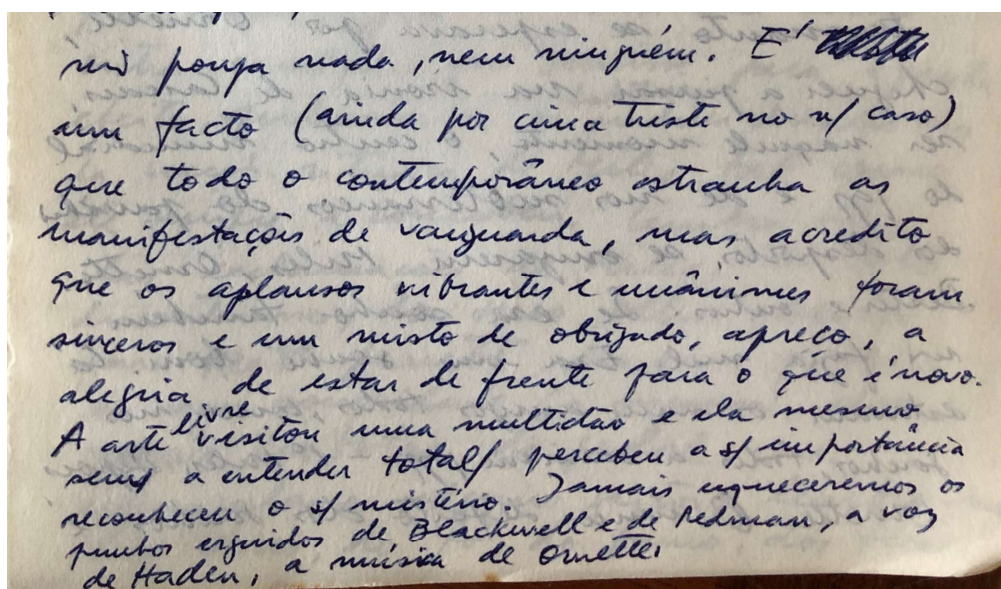 não poupa nada, nem ninguém. E'
um facto (ainda por cima triste no n/ caso)
que todo o contemporâneo estranha as
manifestações de vanguarda, mas acredito
que os aplausos vibrantes e unânimes foram
sinceros e um misto de obrigado, apreço, a
alegria de estar de frente para o que é novo.
A arte livre visitou uma multidão e ela mesmo
sem a entender total/ percebeu a s/ importância
reconheceu o s/ mistério. Jamais esqueceremos os
punhos erguidos de Blackwell e de Redman, a voz
de Haden, a música de Ornette.